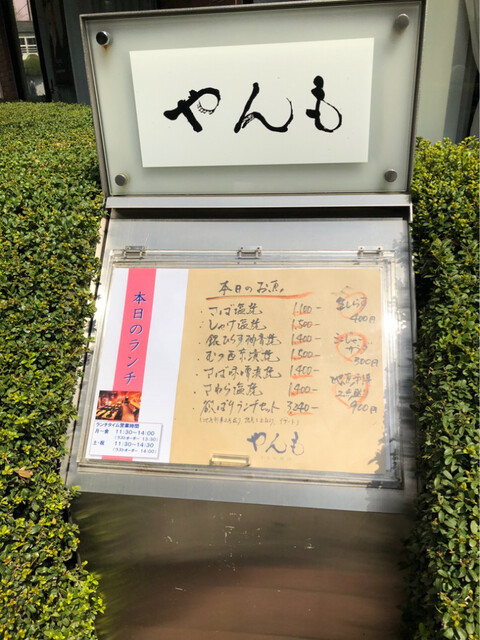 やんも
本日のランチ
ランチタイム営業時間
月～金 11:30～14:00
(ラストオーダー 13:30)
土・祝 11:30～14:30
(ラストオーダー 14:00)
本日のお魚
・さば塩焼 1,100-
・しゃけ塩焼 1,500-
・銀ひらす幽庵焼 1,400-
・むつ西京漬焼 1,500-
・さば味噌漬焼 1,400-
・さわら塩焼 1,400-
・銀だらランチセット 3,240-
生しらす
400円
300円
900円
やんも